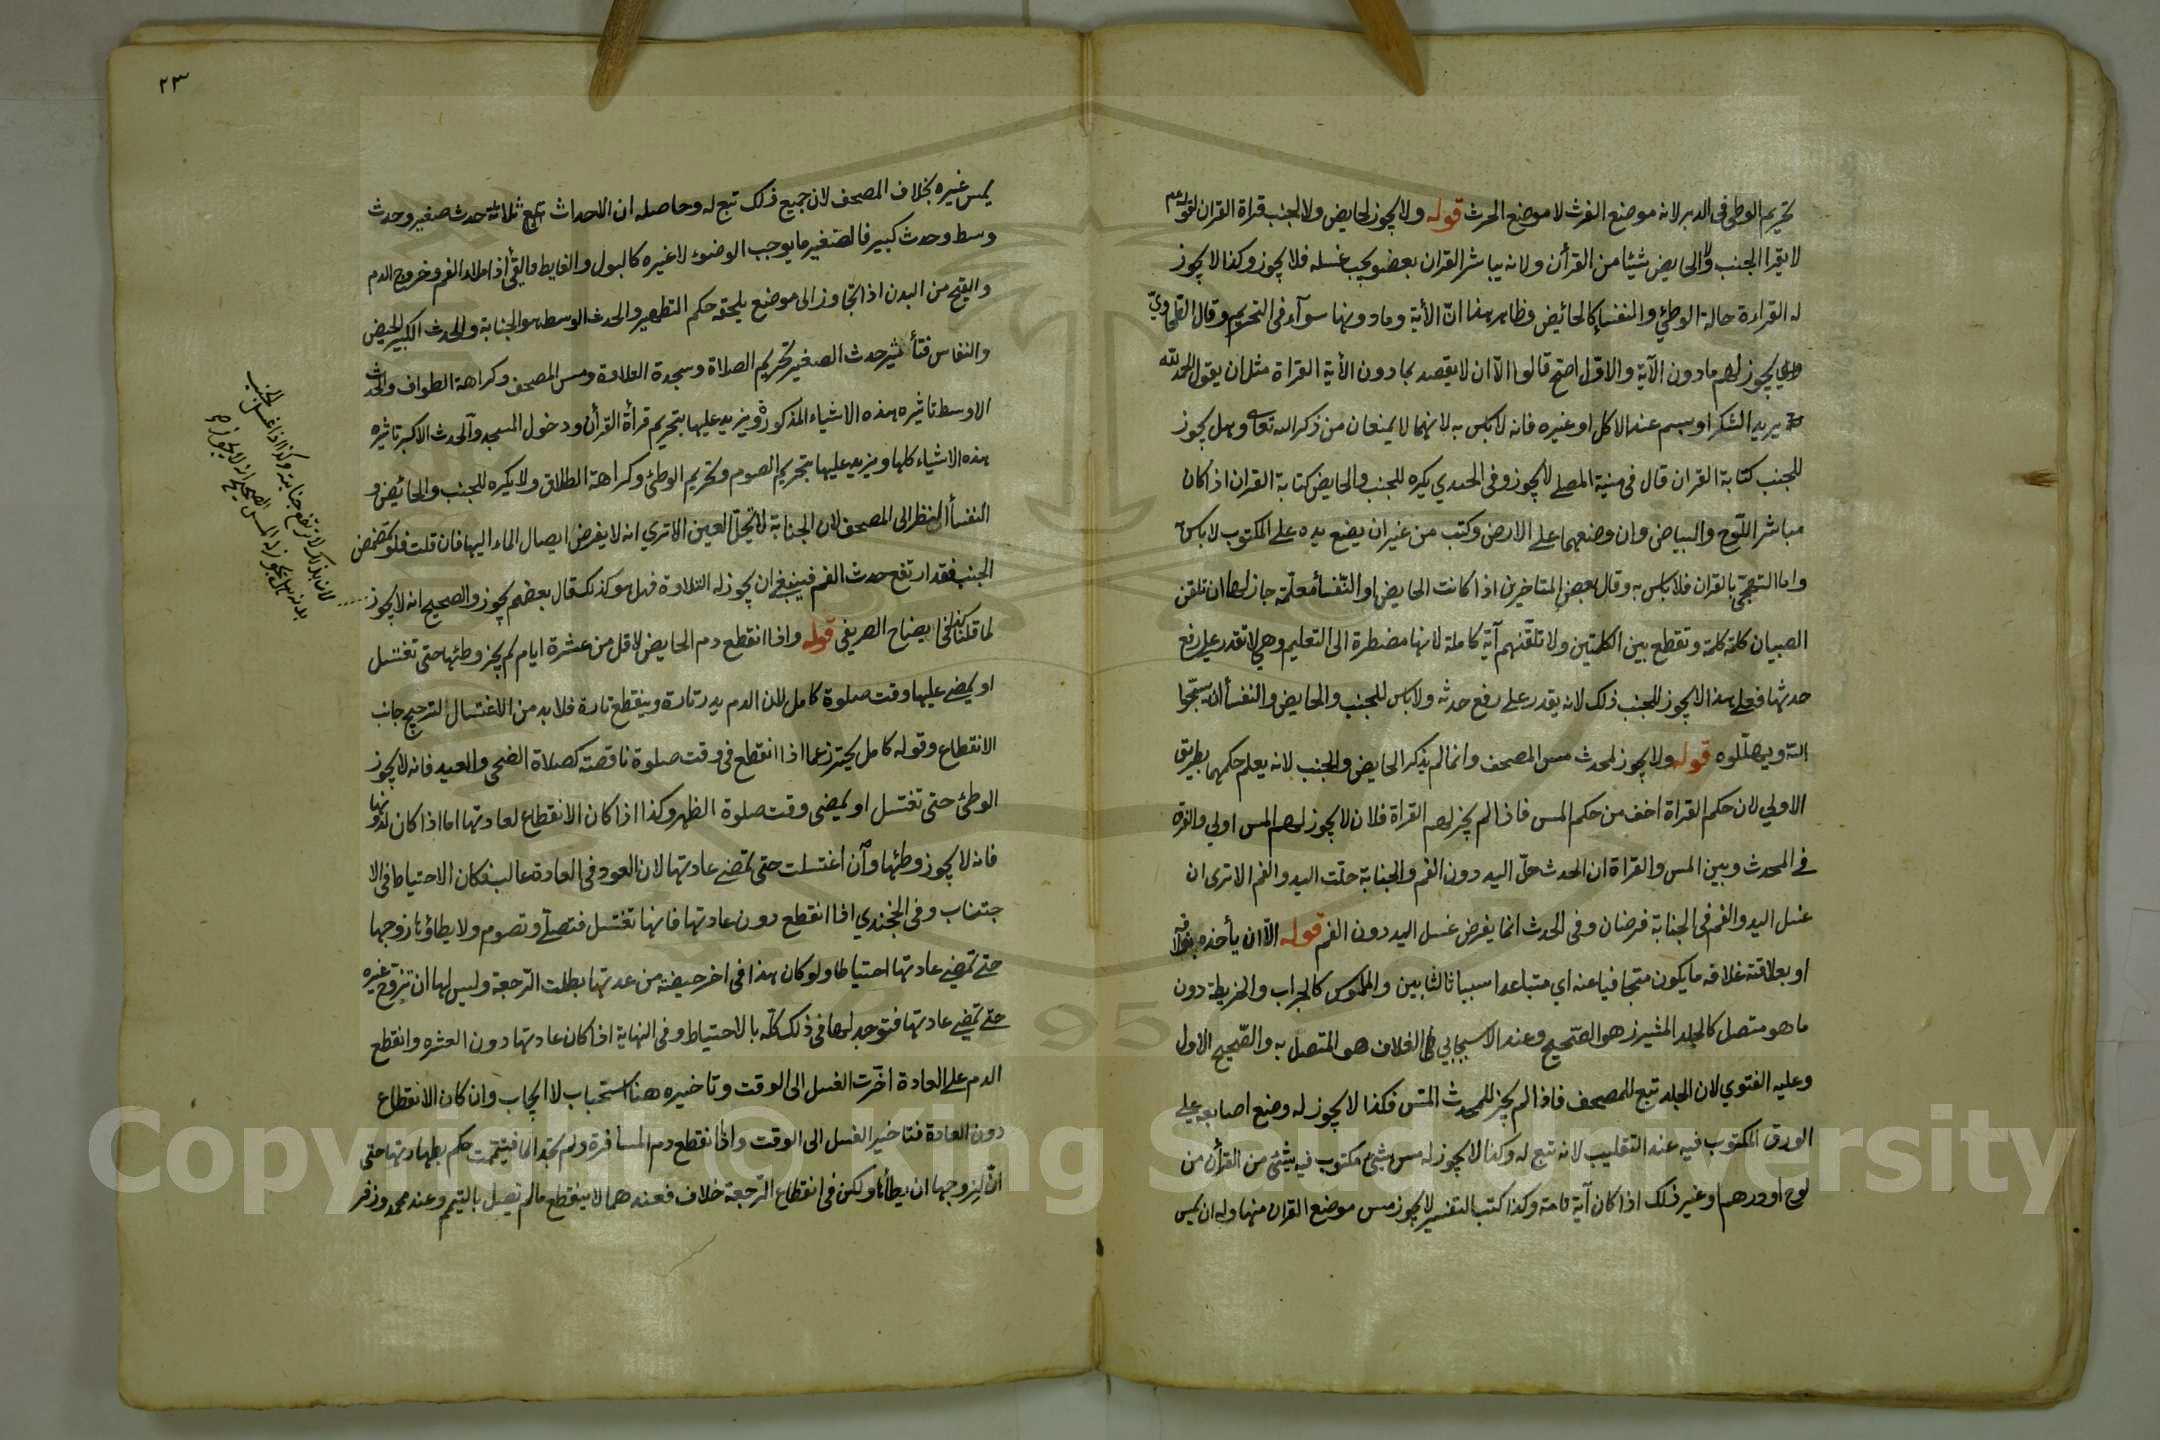 تحريم الوطئ في الدبر لانه موضع الفرث لا موضع الحرث قوله ولا يجوز لحايض ولا لجنب قراة القران لقوله عم
لا يقرا الجنب ولا الحايض شيئا من القرأن ولانه يباشر القران بعضو يجب غسله فلا يجوز وكذا لا يجوز
له القراءة حالة الوطئ والنفسا كالحائض وظاهر هذا انّ الأية وما دونها سوآء في التحريم وقال الطحاويّ
يجوز لهم ما دون الآية والاوّل اصح قالوا الّا ان لا يقصد بما دون الأية القراة مثل ان يقول الحمد لله
يريد الشكر او بسم عند الاكل او غيره فانه لا باس به لانهما لا يمنعان من ذكر الله تعا وهل يجوز
للجنب كتابة القران قال في منية المصلي لا يجوز وفي الخجندي يكره للجنب والحايض كتابة القران اذا كان
مباشر اللّوح والبياض وان وضعهما على الارض وكتب من غير ان يضع يده على المكتوب لا باس
واما التهجّي بالقران فلا باس به وقال بعض المتاخرين اذا كانت الحايض او النّفسأ معلّمة جاز لها ان تلقن
الصبيان كلمة كلمة وتقطع بين الكلمتين ولا تلقّنهم آية كاملة لانها مضطرة الى التعليم وهي لا تقدر على رفع
حدثها فعلى هذا لا يجوز للجنب ذلك لانه يقدر على رفع حدثه ولا باس للجنب والحايض والنفسأ ان يسبّحوا
الله ويهلّلوه قوله ولا يجوز لمحدث مس المصحف وانما لم يذكر الحايض والجنب لانه يعلم حكمهما بطريق
الاولي لان حكم القراة اخف من حكم المس فاذا لم يجز لهم القراة فلان لا يجوز لهم المس اولي والفرق
في المحدث وبين المس والقراة ان الحدث حلّ اليد دون الفم والجنابة حلّت اليد والفم الا ترى ان
غسل اليد والفم في الجنابة فرضان وفي الحدث انما يفرض غسل اليد دون الفم قوله الّا ان يأخذه بغلافه
او بعلاقته غلافه ما يكون متجافيا عنه اي متباعدا سببا ثالثا بين والملموس كالجراب والخريطة دون
ما هو متصل كالجلد المشرز هو الصّحيح وعند الاسبيجابي الغلاف هو المتصل به والصّحيح الاول
وعليه الفتوي لان الجلد تبع للمصحف فاذا لم يجز للمحدث المس فكذا لا يجوز له وضع اصابعه على
الورق المكتوب فيه عند التقليب لانه تبع له وكذا لا يجوز له مس شيئ مكتوب فيه شيئ من القرأن من
لوح او درهم او غير ذلك اذا كان آية تامة وكذا كتب التفسير لا يجوز مس موضع القران منها وله ان يمس
٢٣
يمس غيره بخلاف المصحف لان جميع ذلك تبع له وحاصله ان الاحداث ثلاثة حدث صغير وحدث
وسط وحدث كبير فالصّغير ما يوجب الوضوء لا غيره كالبول والغايط والقئ اذا ملاء الفم وخروج الدم
والقيح من البدن اذا تجاوز الى موضع يلحقه حكم التطهير والحدث الوسط هو الجنابة والحدث الكبير الحيض
والنفاس فتأثير حدث الصغير تحريم الصلاة وسجدة التلاوة ومس المصحف وكراهة الطواف والحدث
الاوسط تاثيره هذه الاشياء المذكورة ويزيد عليها بتحريم قرأة القرأن ودخول المسجد والحدث الاكبر تاثيره
هذه الاشياء كلها ويزيد عليها بتحريم الصوم وتحريم الوطئ وكراهة الطلاق ولا يكره للجنب والحائض و
النفسأ النظر الى المصحف لان الجنابة لا تحلّ العين الا تري انه لا يفرض ايصال الماء اليها فان قلت فلو تمضمض
الجنب فقد ارتفع حدث الفم فينبغي ان يجوز له التلاوة فهل هو كذلك قال بعضهم يجوز والصحيح انه لا يجوز
لما قلنا كذا في ايضاح الصريفي قوله واذا انقطع دم الحايض لاقل من عشرة ايام لم يجز وطئها حتى تغتسل
او يمضي عليها وقت صلوة كامل لان الدم يدر تارة وينقطع تارة فلا بد من الاغتسال لترجيح جانب
الانقطاع وقوله كامل يحترز عما اذا انقطع في وقت صلوة ناقصة كصلاة الضحى والعيد فانه لا يجوز
الوطئ حتى تغتسل او يمضي وقت صلوة الظهر وكذا اذا كان الانقطاع لعادتها اما اذا كان لدونها
فانه لا يجوز وطئها وان اغتسلت حتى تمضي عادتها لان العود في العادة غالب فكان الاحتياط في الا
جتناب وفي الخجندي اذا انقطع دون عادتها فانها تغتسل فتصلّي وتصوم ولا يطاؤها زوجها
حتى تمضي عادتها احتياطا ولو كان هذا في اخر حيضة من عدتها بطلت الرّجعة وليس لها ان تتزوّج غيره
حتى تمضي عادتها فتؤخذ لها في ذلك كلّه بالاحتياط وفي النهاية اذا كان عادتها دون العشرة وانقطع
الدم على العادة اخّرت الغسل الى الوقت وتاخيره هنا استحباب لا ايجاب وان كان الانقطاع
دون العادة فتاخير الغسل الى الوقت واذا انقطع دم المسافرة ولم تجد الما فتيممت حكم بطهارتها حتى
انّ لزوجها ان يطأها ولكن في انقطاع الرّجعة خلاف فعندهما لا ينقطع مالم تصل بالتيمم وعند محمد وزفر
لان بذلك لا ترتفع جنابته وكذا اذا غسل الجنب
يديه هل يجوز له المس الصحيح انه لا يجوز
Copyright © King Saud University